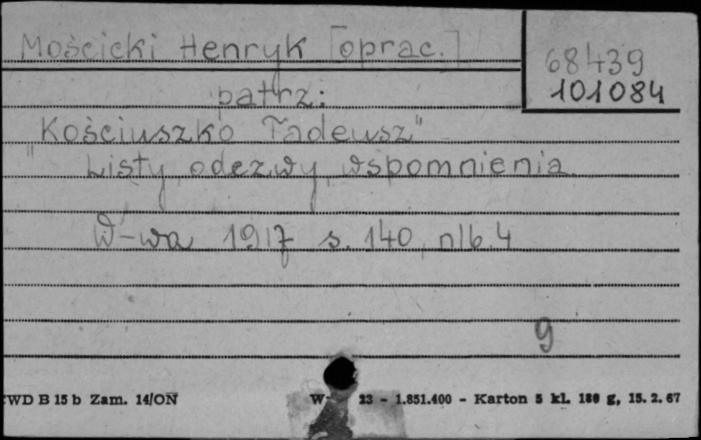 Mościcki Henryk [oprac.]
68439
101084
patrz:
"Kościuszko Tadeusz"
Listy, odezwy, wspomnienia.
W-wa 1917 s. 140, nlb. 4
9
WD B 15 b Zam. 14/ON W- 23 - 1.851.400 - Karton 5 kl. 180 g, 15. 2. 67